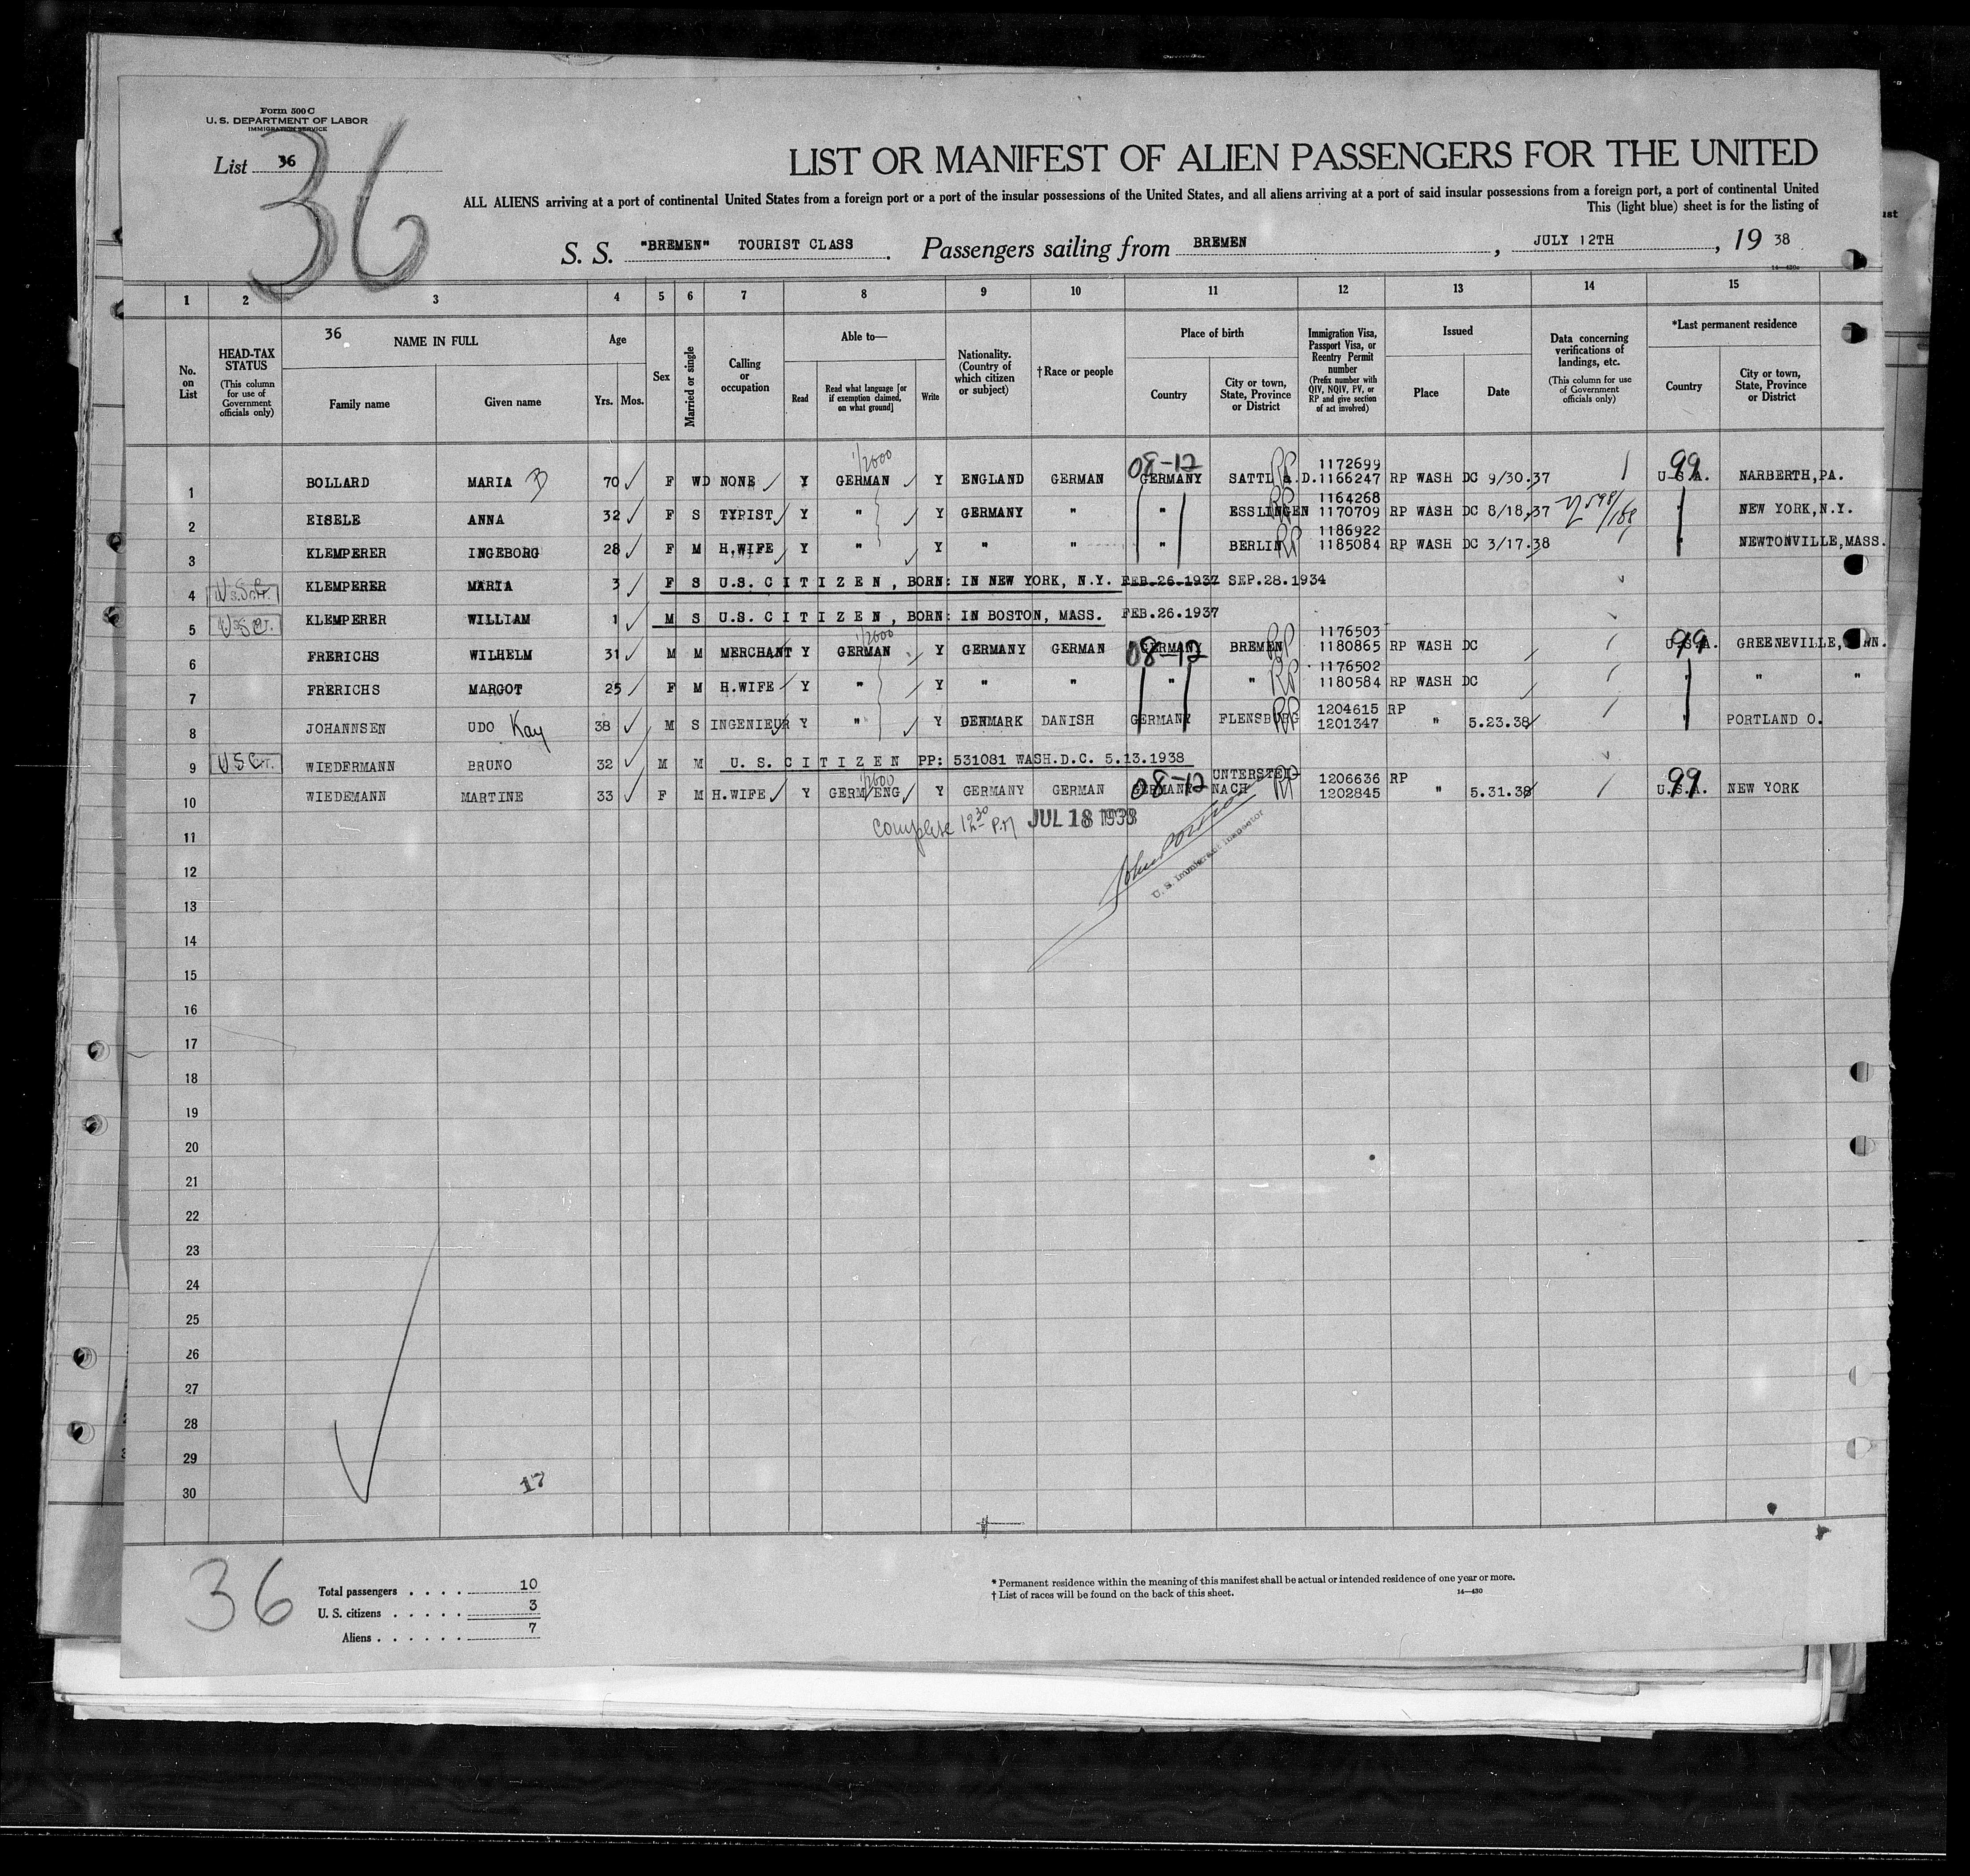 Form 500 C
U. S. DEPARTMENT OF LABOR
IMMIGRATION SERVICE
List 36
36
LIST OR MANIFEST OF ALIEN PASSENGERS FOR THE UNITED
ALL ALIENS arriving at a port of continental United States from a foreign port or a port of the insular possessions of the United States, and all aliens arriving at a port of said insular possessions from a foreign port, a port of continental United
This (light blue) sheet is for the listing of
S. S. "BREMEN" TOURIST CLASS. Passengers sailing from BREMEN, JULY 12TH, 19 38
1 2 3 4 5 6 7 8 9 10 11 12 13 14 15
No. on List
HEAD-TAX STATUS (This column for use of Government officials only)
36 NAME IN FULL
Family name Given name
Age
Yrs. Mos.
Sex
Married or single
Calling or occupation
Able to—
Read
Read what language [or if exemption claimed, on what ground]
Write
Nationality. (Country of which citizen or subject)
† Race or people
Place of birth
Country
City or town, State, Province or District
Immigration Visa, Passport Visa, or Reentry Permit number (Prefix number with QIV, NQIV, PV, or RP and give section of act involved)
Issued
Place Date
Data concerning verifications of landings, etc. (This column for use of Government officials only)
*Last permanent residence
Country
City or town, State, Province or District
1 BOLLARD MARIA 70 F WD NONE Y GERMAN Y ENGLAND GERMAN 08-12 GERMANY SATTL a.D. RP 1172699 1166247 RP WASH DC 9/30.37 99 U.S.A. NARBERTH,PA.
2 EISELE ANNA 32 F S TYPIST Y " Y GERMANY " " ESSLINGEN RP 1164268 1170709 RP WASH DC 8/18,37 NEW YORK,N.Y.
3 KLEMPERER INGEBORG 28 F M H.WIFE Y " Y " " " BERLIN RP 1186922 1185084 RP WASH DC 3/17.38 NEWTONVILLE,MASS.
4 KLEMPERER MARIA 3 F S U.S. C I T I Z E N , BORN: IN NEW YORK, N.Y. FEB.26.1937 SEP.28.1934
5 KLEMPERER WILLIAM 1 M S U.S. C I T I Z E N , BORN: IN BOSTON, MASS. FEB.26.1937
6 FRERICHS WILHELM 31 M M MERCHANT Y GERMAN Y GERMANY GERMAN 08-12 GERMANY BREMEN RP 1176503 1180865 RP WASH DC 99 U.S.A. GREENEVILLE,
7 FRERICHS MARGOT 25 F M H.WIFE Y " Y " " " " RP 1176502 1180584 RP WASH DC " "
8 JOHANNSEN UDO Kay 38 M S INGENIEUR Y " Y DENMARK DANISH GERMANY FLENSBURG RP 1204615 1201347 RP " 5.23.38 PORTLAND O.
9 WIEDERMANN BRUNO 32 M M U. S. C I T I Z E N PP: 531081 WASH.D.C. 5.13.1938
10 WIEDEMANN MARTINE 33 F M H.WIFE Y GERM/ENG Y GERMANY GERMAN 08-12 GERMANY UNTERSTEI- NACH RP 1206636 1202845 RP " 5.31.38 99 U.S.A. NEW YORK
11 Complete 12 30 P.M JUL 18 1938
U. S. Immigrant Inspector
12
13
14
15
16
17
18
19
20
21
22
23
24
25
26
27
28
29
30
17
36
Total passengers . . . . 10
U. S. citizens . . . . . 3
Aliens . . . . . . 7
* Permanent residence within the meaning of this manifest shall be actual or intended residence of one year or more.
† List of races will be found on the back of this sheet.
14—430